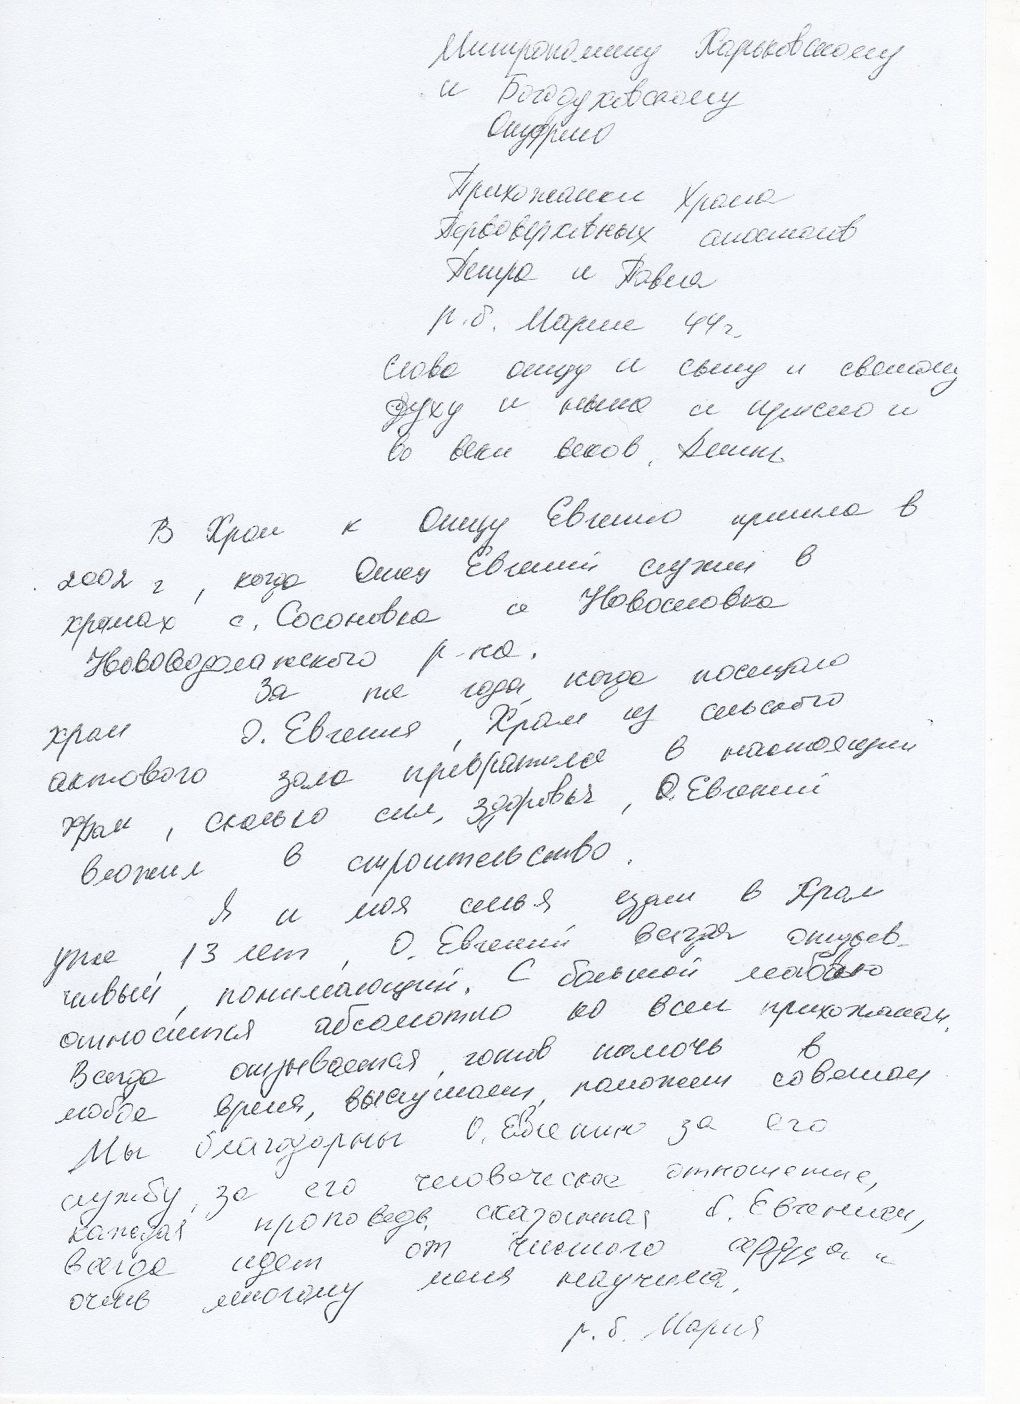 Митрополиту Харьковскому
и Богодуховскому
Онуфрию
Прихожанки Храма
Первоверховных апостолов
Петра и Павла
р.б. Марии 44 г.
Слава отцу и сыну и святому
Духу и ныне и присно и
во веки веков. Аминь
В Храм к Отцу Евгению пришла в
2002 г, когда Отец Евгений служил в
храмах с. Сосоновка и Новоселовка
Нововодолажского р-на.
За те года, когда посещаю
храм О. Евгения, Храм из сельского
актового зала превратился в настоящий
Храм, сколько сил, здоровья, О. Евгений
вложил в строительство.
Я и моя семья ездим в Храм
уже 13 лет, О. Евгений всегда отзыв-
чивый, понимающий. С большой любовью
относится абсолютно ко всем прихожанам.
Всегда отзывается, готов помочь в
любое время, выслушает, поможет советом
Мы благодарны О. Евгению за его
службу, за его человеческое отношение,
каждая проповедь, сказанная О. Евгением,
всегда идет от чистого сердца и
очень многому меня научила.
р.б. Мария